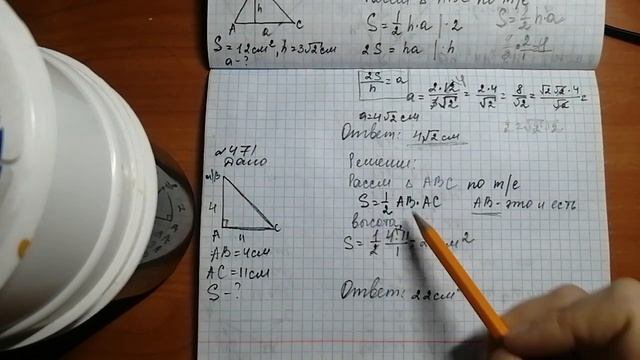 h
A a C
S = 12 см², h = 3√2 см
a - ?
S = 1/2 h·a | ·2
2S = ha | :h
S = 1/2 h·a
2S/h = a
a = 2·12/3√2 = 2·4/√2 = 8/√2 = √2·√2·4/√2 =
a = 4√2 см
Ответ: 4√2 см
№ 471
Дано
B
4
A 11 C
AB = 4 см
AC = 11 см
S - ?
Решение:
Рассм Δ ABC по т/е
S = 1/2 AB·AC AB - это и есть
высота
S = 1/2
см²
Ответ: 22 см²